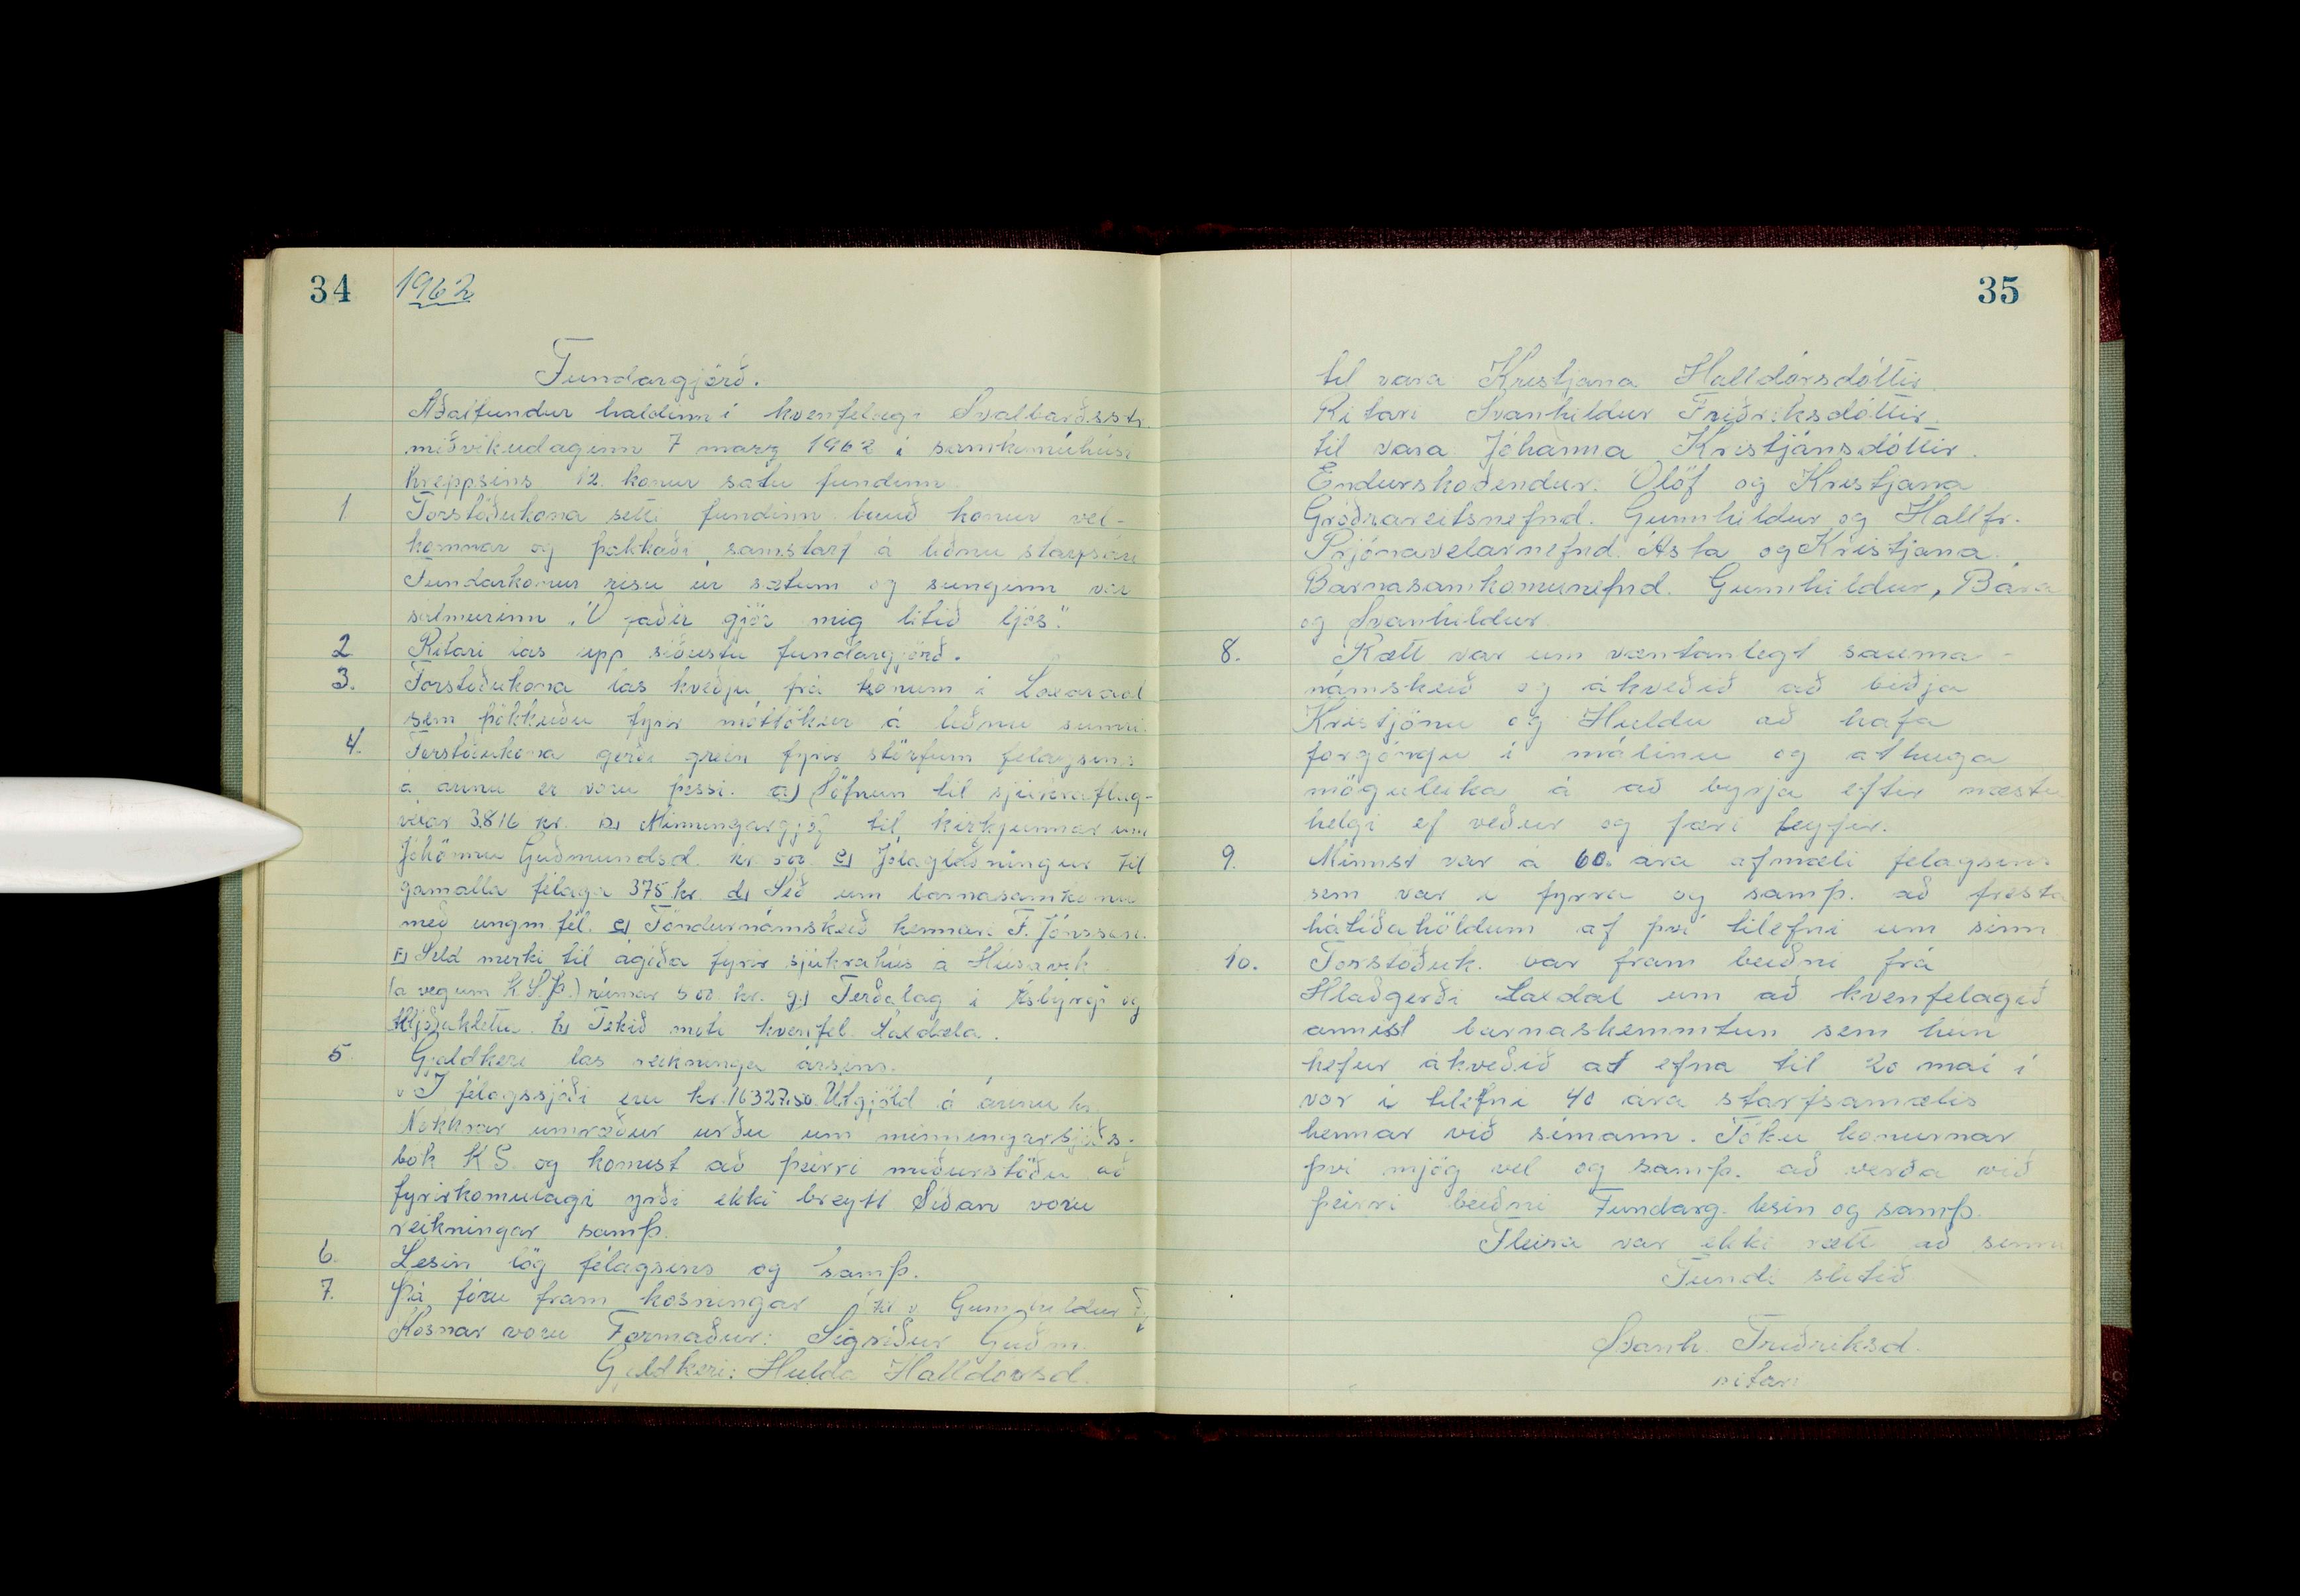 34 1962
Fundargjörð.
Aðalfundur haldinn í kvenfélagi Svalbarðsstr.
miðvikudaginn 7 marz 1962 í samkomuhúsi
hreppsins 12. konur satu fundinn
1 Forstöðukona setti fundinn bauð konur vel-
komnar og þakkaði samstarf á liðnu starfsári
Fundarkonur risu úr sætum og sunginn var
sálmurinn „Ó faðir gjör mig lítið ljós."
2 Ritari las upp síðustu fundargjörð.
3. Forstöðukona las kveðju frá konum í Laxárdal
sem þökkuðu fyrir móttökur á liðnu sumri
4. Forstöðukona gerði grein fyrir störfum félagsins
á árinu er voru þessi. a) Söfnun til sjúkraflug-
vélar 3.816 kr. b) Minningargjöf til kirkjunnar um
Jóhönnu Guðmundsd. kr. 500 c) Jólaglaðningur til
gamalla félaga 375 kr. d) Séð um barnasamkomu
með ungm.fél. e) Föndurnámskeið kennari F. Jónsson.
f) Seld merki til ágóða fyrir sjúkrahús á Húsavík
(á vegum K.S.Þ.) rúmar 500 kr. g) Ferðalag í Ásbyrgi og
Hljóðakletta. h) Tekið móti kvenfél. Laxdæla.
5 Gjaldkeri las reikninga ársins.
Í félagssjóði eru kr. 16327.50 Útgjöld á árinu kr.
Nokkrar umræður urðu um minningarsjóðs-
bók K S. og komist að þeirri niðurstöðu að
fyrirkomulagi yrði ekki breytt Síðan voru
reikningar samþ.
6. Lesin lög félagsins og samþ.
7. Þá fóru fram kosningar til v. Gunnhildur
Kosnar voru Formaður: Sigríður Guðm.
Gjaldkeri: Hulda Halldórsd.
35
til vara Kristjana Halldórsdóttir.
Ritari Svanhildur Friðriksdóttir
til vara Jóhanna Kristjánsdóttir.
Endurskoðendur. Ólöf og Kristjana
Gróðrareitsnefnd. Gunnhildur og Hallfr.
Prjónavelarnefnd. Ásta og Kristjana.
Barnasamkomunefnd. Gunnhildur, Bára
og Svanhildur.
8. Rætt var um væntanlegt sauma-
námskeið og ákveðið að biðja
Kristjönu og Huldu að hafa
forgöngu í málinu og athuga
möguleika á að byrja eftir næstu
helgi ef veður og færi leyfir.
9. Minnst var á 60. ára afmæli félagsins
sem var í fyrra og samþ. að fresta
hátíðahöldum af því tilefni um sinn
10. Forstöðuk. bar fram beiðni frá
Hlaðgerði Laxdal um að kvenfelagið
annist barnaskemmtun sem hún
hefur ákveðið at efna til 20 maí í
vor í tilefni 40 ára starfsamælis
hennar við símann. Tóku konurnar
því mjög vel og samþ. að verða við
þeirri beiðni Fundarg. lesin og samþ.
Fleira var ekki rætt að sinni
Fundi slitið
Svanh. Friðriksd.
ritari